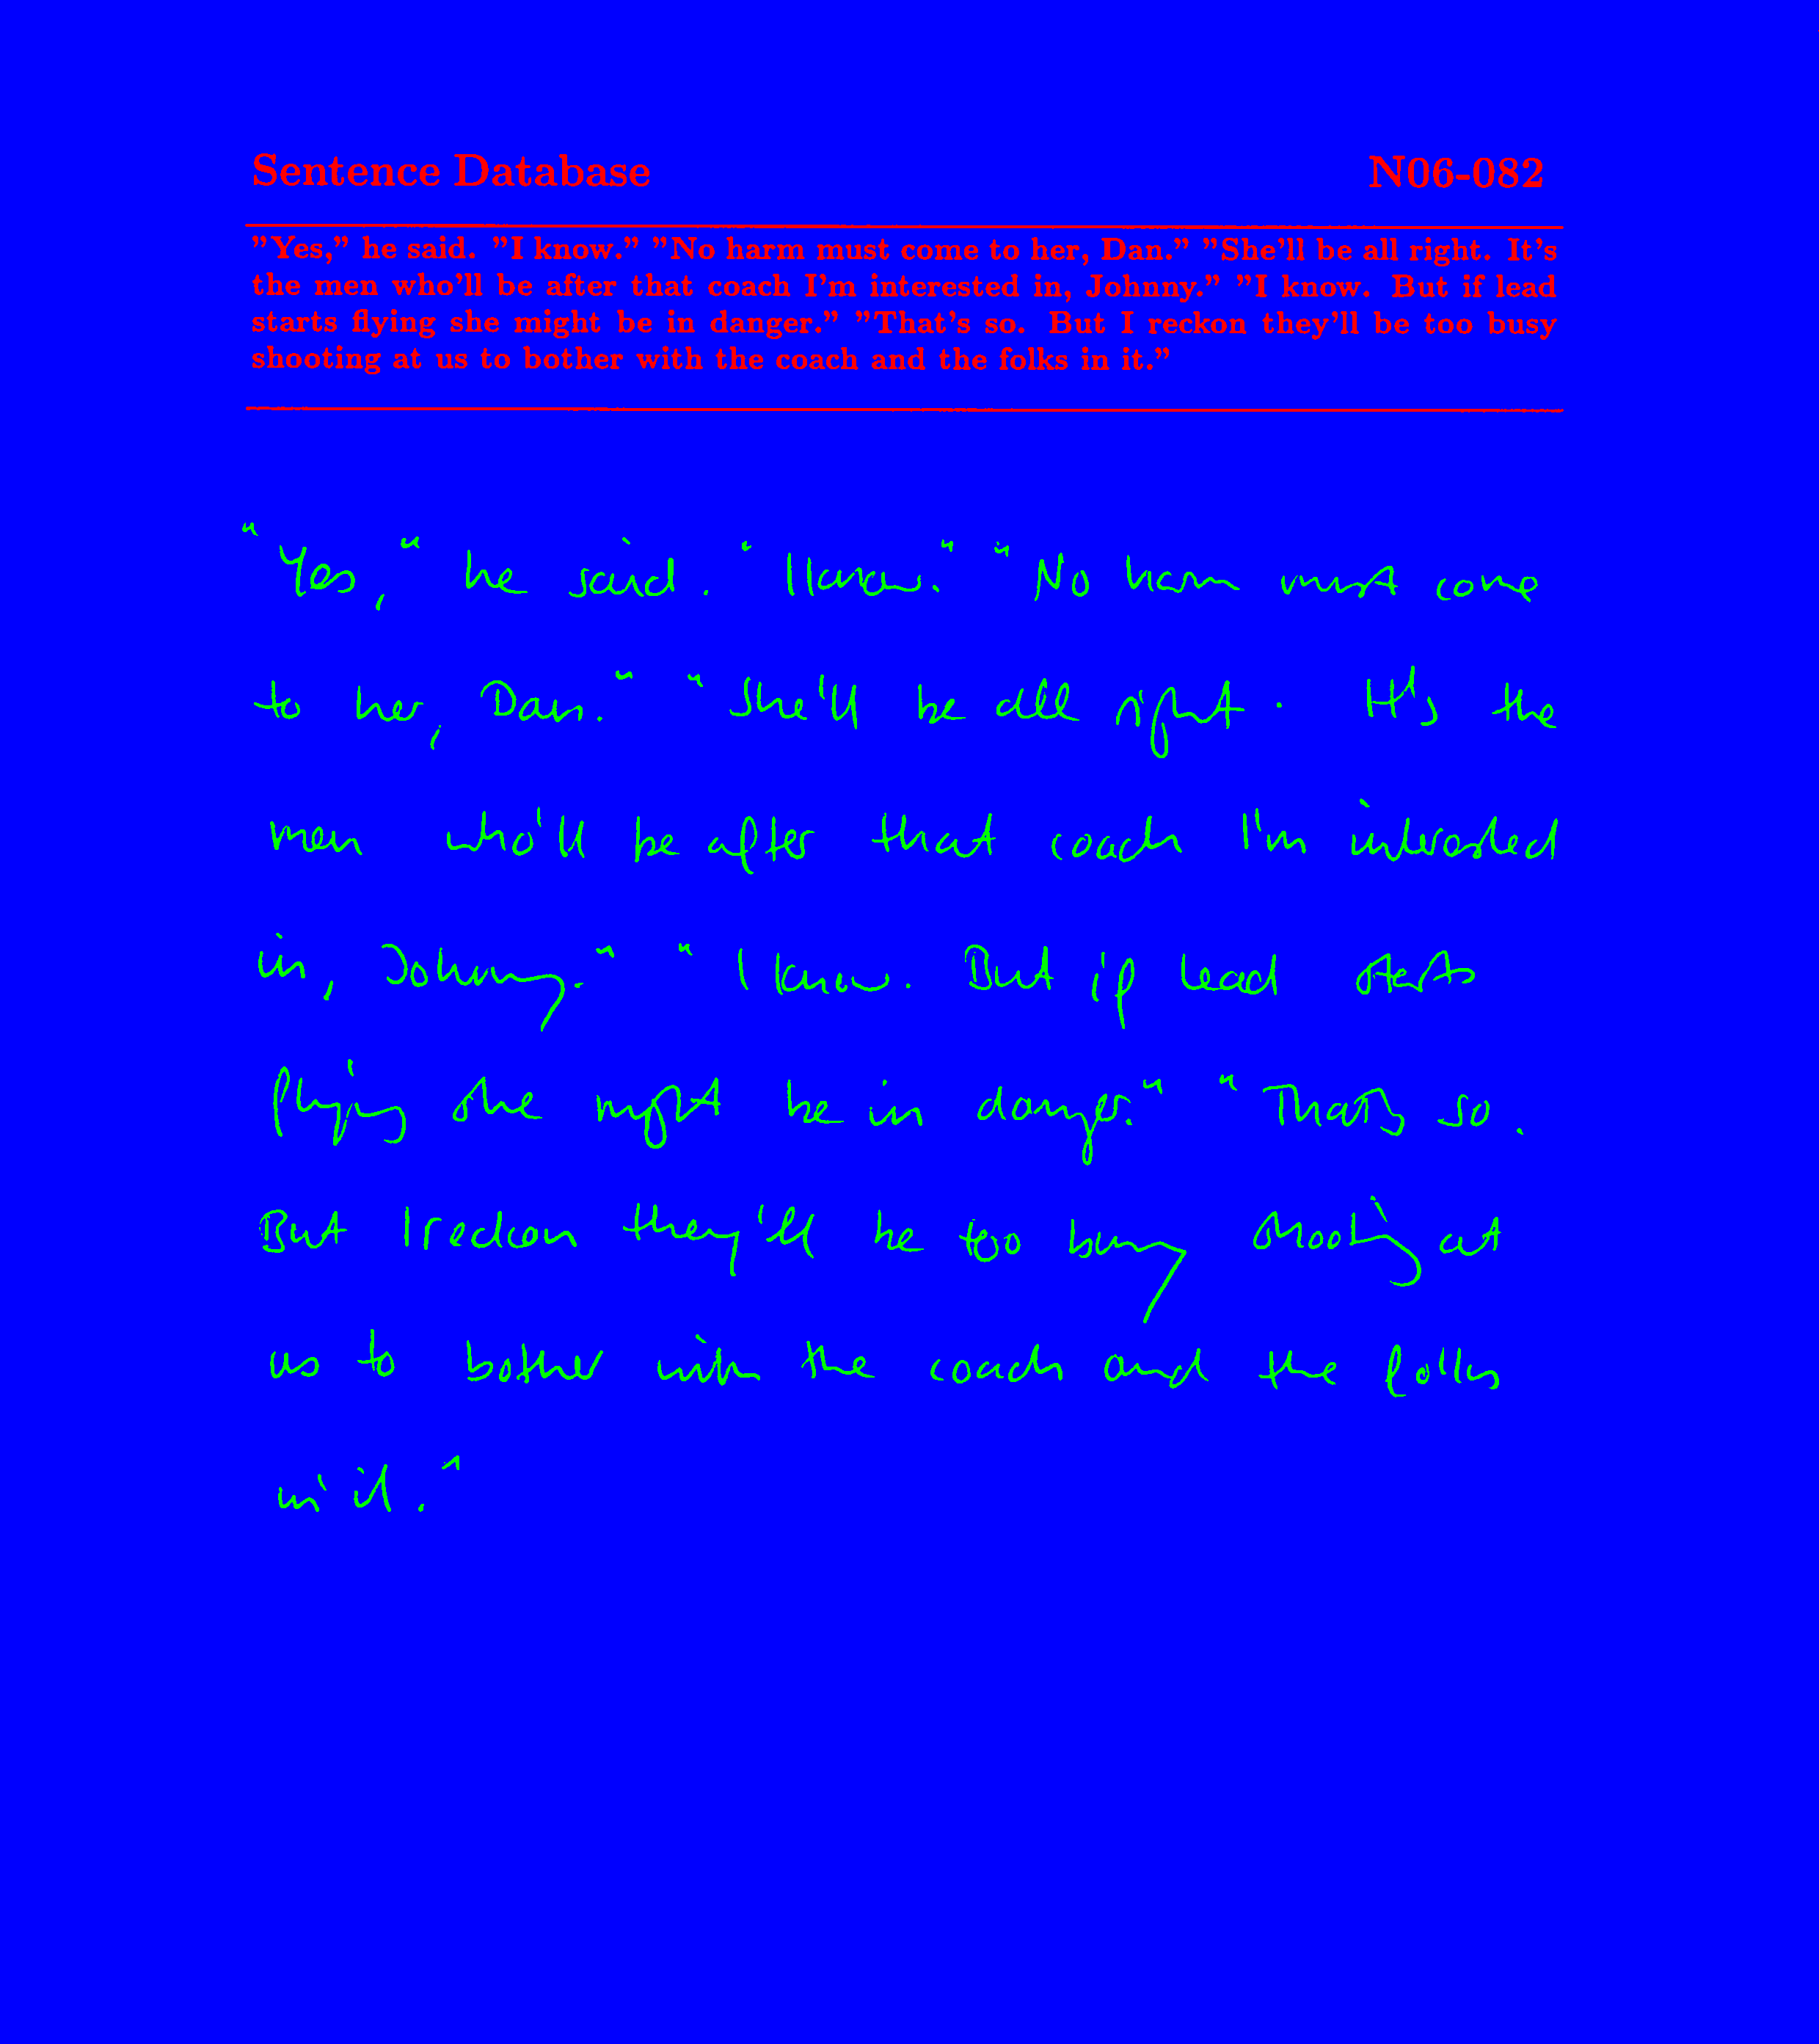 Sentence Database N06-082
"Yes," he said. "I know." "No harm must come to her, Dan." "She'll be all right. It's
the men who'll be after that coach I'm interested in, Johnny." "I know. But if lead
starts flying she might be in danger." "That's so. But I reckon they'll be too busy
shooting at us to bother with the coach and the folks in it."
"Yes," he said. "I know." "No harm must come
to her, Dan." "She'll be all right. It's the
men who'll be after that coach I'm interested
in, Johnny." "I know. But if lead starts
flying she might be in danger." "That's so.
But I reckon they'll be too busy shooting at
us to bother with the coach and the folks
in it."